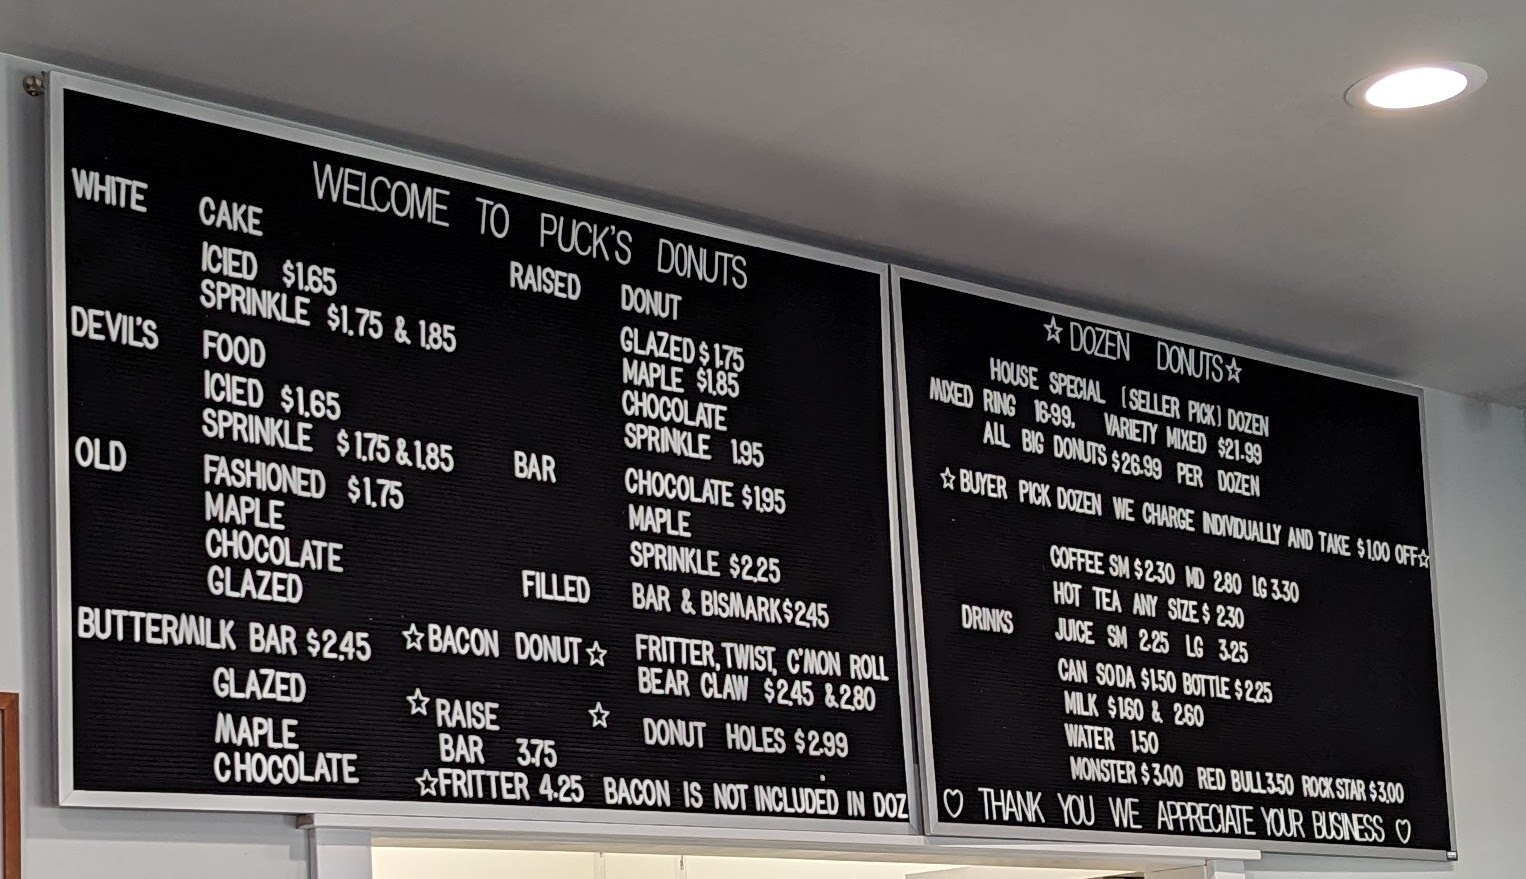 WELCOME TO PUCK'S DONUTS
WHITE CAKE
ICIED $1.65
SPRINKLE $1.75 & 1.85
DEVIL'S FOOD
ICIED $1.65
SPRINKLE $1.75 & 1.85
OLD FASHIONED $1.75
MAPLE
CHOCOLATE
GLAZED
BUTTERMILK BAR $2.45
GLAZED
MAPLE
CHOCOLATE
RAISED DONUT
GLAZED $1.75
MAPLE $1.85
CHOCOLATE
SPRINKLE 1.95
BAR CHOCOLATE $1.95
MAPLE
SPRINKLE $2.25
FILLED BAR & BISMARK $2.45
FRITTER, TWIST, C'MON ROLL
BEAR CLAW $2.45 & 2.80
DONUT HOLES $2.99
☆BACON DONUT☆
☆RAISE ☆
BAR 3.75
☆FRITTER 4.25 BACON IS NOT INCLUDED IN DOZ
☆DOZEN DONUTS☆
HOUSE SPECIAL [SELLER PICK] DOZEN
MIXED RING 16.99, VARIETY MIXED $21.99
ALL BIG DONUTS $26.99 PER DOZEN
☆BUYER PICK DOZEN WE CHARGE INDIVIDUALLY AND TAKE $1.00 OFF☆
COFFEE SM $2.30 MD 2.80 LG 3.30
HOT TEA ANY SIZE $ 2.30
DRINKS JUICE SM 2.25 LG 3.25
CAN SODA $1.50 BOTTLE $2.25
MILK $1.60 & 2.60
WATER 1.50
MONSTER $3.00 RED BULL 3.50 ROCK STAR $3.00
♡ THANK YOU WE APPRECIATE YOUR BUSINESS ♡